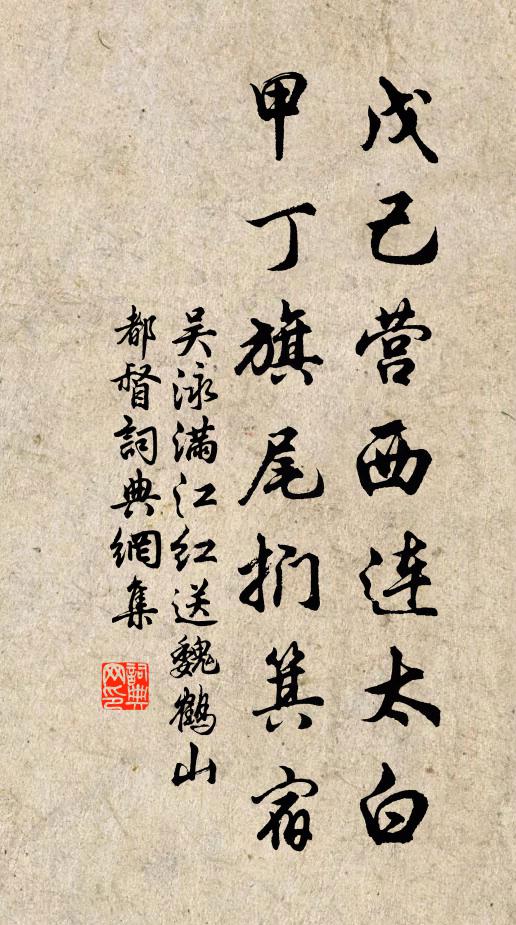 戊己营西连太白
甲丁旗尾扪箕宿
吴泳满江红送魏鹤山
都督詞典網集
詞典网印